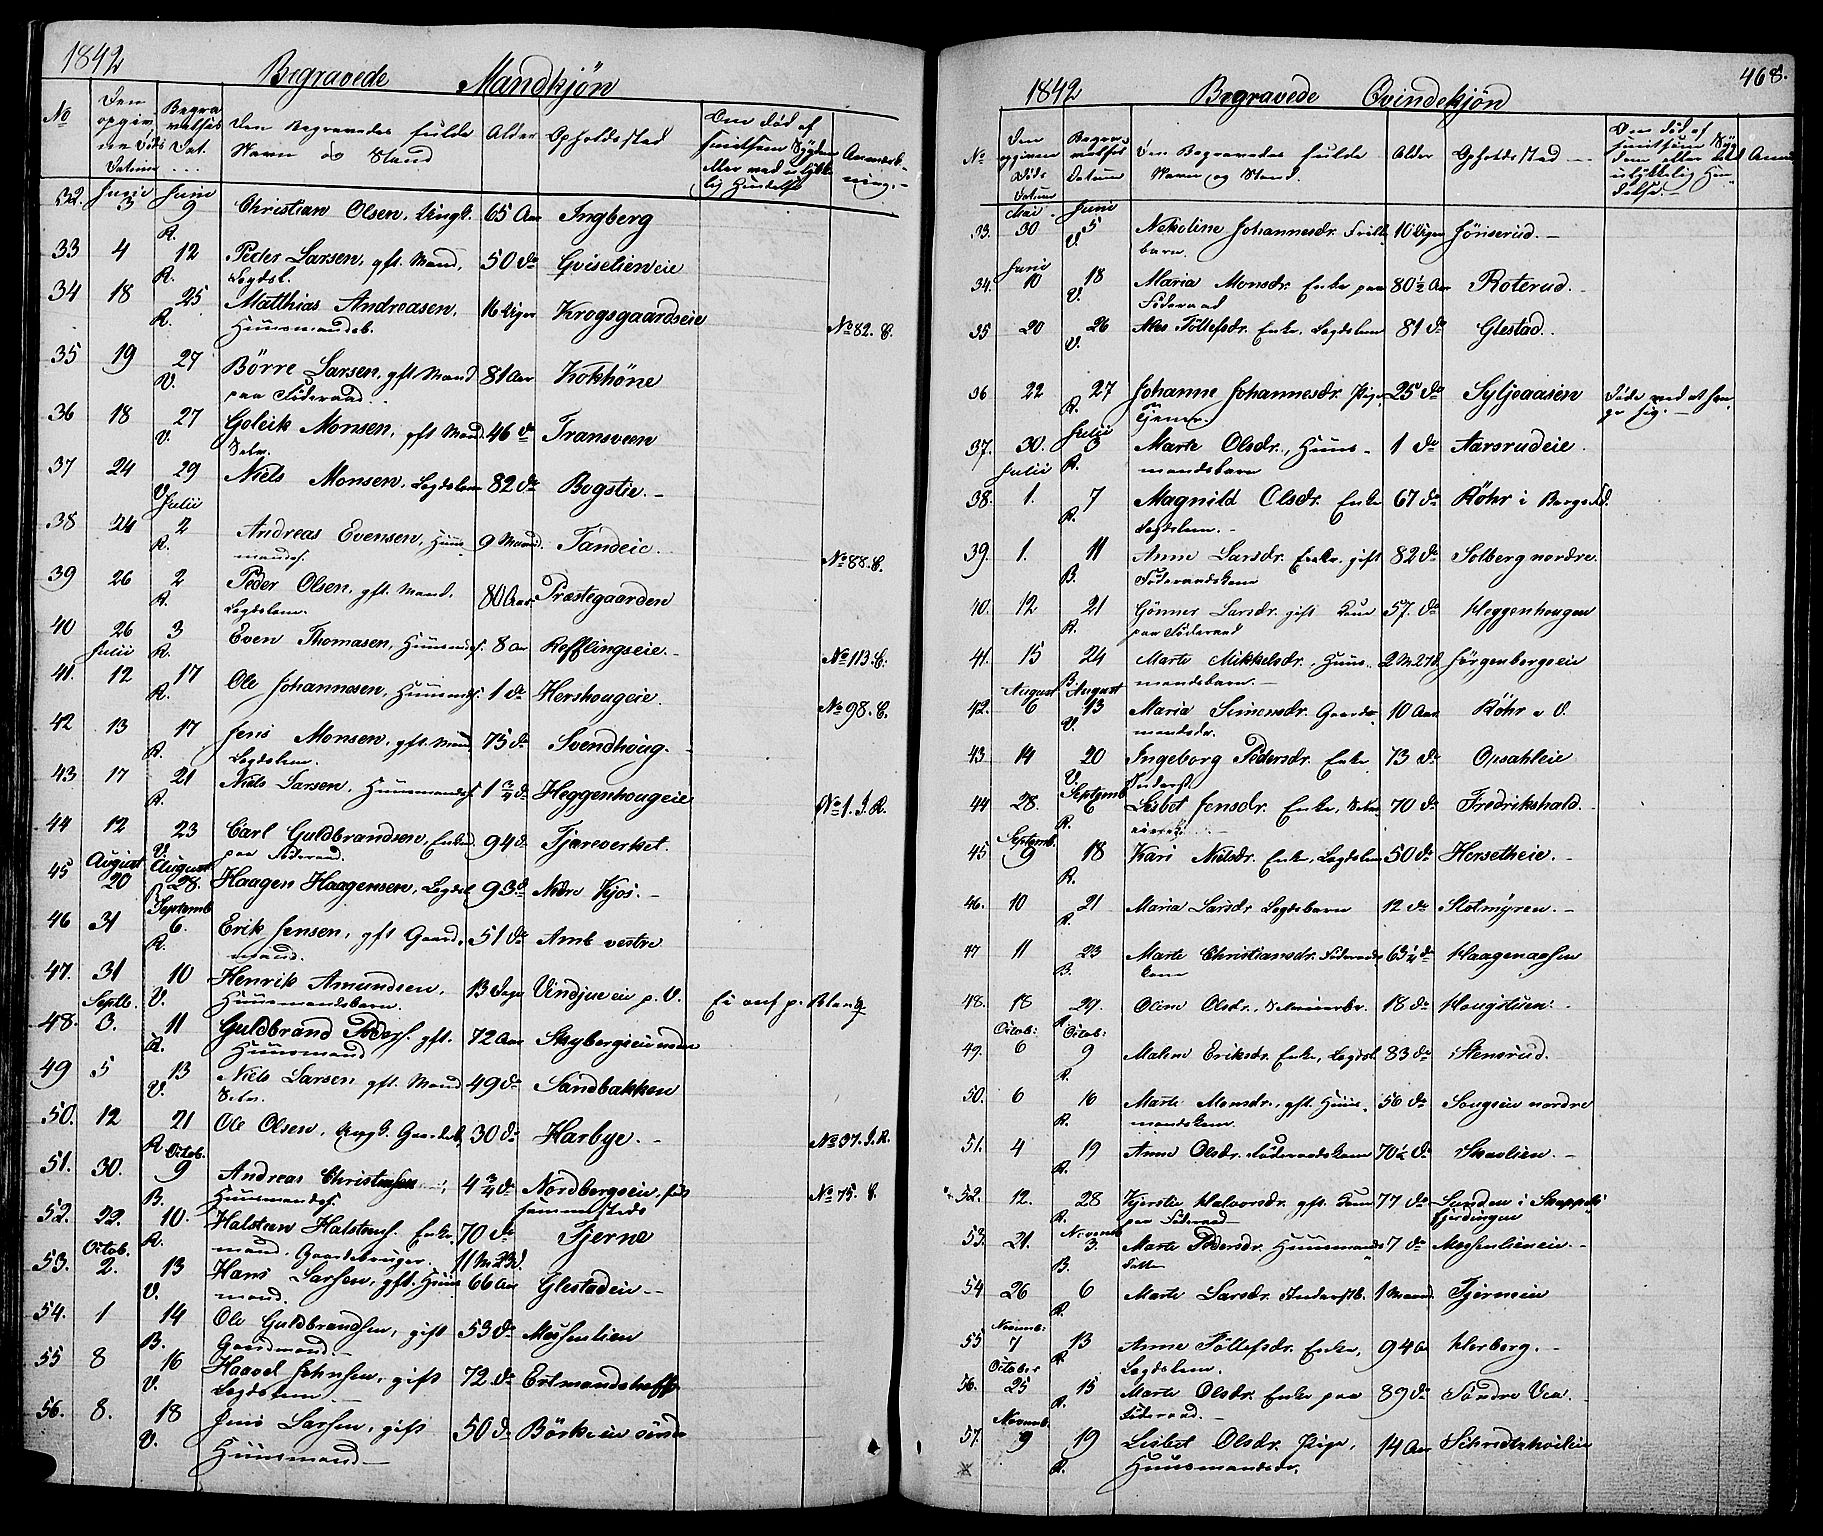 1842
Begravede Mandkjøn
No
Den opgivne Døds Datum
Begravelses Dat.
Den Begravedes fulde Navn og Stand
Alder
Opholdssted
Om død af smitsom Sygdom eller ved ulykkelig Hændelse
Anmærkning.
Junii Junii
32. 3 9 R. Christian Olsen, Ungk. 65 Aar Ingberg
33 4 12 R. Peder Larsen, gift Mand, Lægdsl. 50 do Gviselieneie
34 18 25 R. Matthias Andreasen, Huusmandsb. 16 Uger Krogsgaardseie No 82. C.
35 19 27 V. Börre Larsen, gift Mand paa Föderaad. 81 Aar Kokhöne
36 18 27 V. Goleik Monsen, gift Mand Selv. 46 do Transveen
37 24 29 V. Niels Monsen, Lægdslem 82 do Bogstie.
Julii
38 24 2 R. Andreas Evensen, Huusmandss. 9 Maand. Tandeie. No 88. C.
39 26 2 R. Peder Olsen, gft. Mand, Legdslem. 80 Aar Præstegaarden
40 26 3 R. Even Thomasen, Huusmdss. 8 Aar Refflingseie. No 113. C.
Julii
41. 12 17 R. Ole Johannesen, Huusmdss. 1 do Hershougeie. No 98. C.
42 13 17 R. Jens Monsen, gft. Mand, Legdslem. 75 do Svendhoug.
43 17 21 R. Niels Larsen, Huusmandss. 1 3/4 do Heggenhougeie No 1. I. R.
44 12 23 V. Carl Guldbrandsen, Enkem. paa Föderaad. 94 d. Tjæreverket.
August August
45 20 28. Haagen Haagensen, Legdsl. 93 d Nedre Kjos.
Septemb.
46 31 6. R. Erik Jensen, gft Gaardmand. 51 do Amb vestre
47. 31 10 V. Henrik Amundsen, Huusmandsbarn. 13 Dage Vindjueeie p. V. Ei anf. p.
Septb.
48. 3. 11 R. Guldbrand Peders. gft. Huusmand 72 Aar Skybergseie
49 5 13 V. Niels Larsen gft. Mand Selv. 49 do Sandbakken
50. 12 21 R. Ole Olsen, Ungk. Gaardsb. 30 do Harbye. No 37. I. R.
Octob.
51. 30. 9 B. Andreas Christensen, Huusmandss. 4 3/4 do Nordbergseie, sammesteds No 75. C.
52. 22. 10. R. Halsteen Halstens. Enkemand, Gaardbruger. 70 do Tjerne
11 M 23 d.
Octob.
53. 2. 13 V. Hans Larsen, gft. Huusmand. 66 Aar Glestadeie
54. 1 14 B. Ole Guldbrandsen, gift Gaardmand. 53 do Messenlien
55 8 16 V. Haavel Johnsen, gift Legdslem 72 do
56. 8. 18 V. Jens Larsen, gift Huusmand 50 do Börkeeie söndre
468.
1842
Begravede Qvindekjön
No
Den opgivne Døds Datum
Begravelses Datum
Den Begravedes fulde Navn og Stand.
Alder
Opholdssted
Om død af smitsom Sygdom eller ved ulykkelig Hændelse.
Anm
Mai Junii
33. 30 5 V. Nekoline Johannesdr. barn. 10 Uger Jönserud.
Junii
34. 10 18 V. Maria Monsdr. Enke paa Föderaad 80 1/2 Aar Roterud.
35 20 26 V. Töllefsdr. Enke, Legdslem 81 do Glestad.
36 22 27 R. Johanne Johannesdr. Pige Tjener. 25 do Syljeaasen Døde ved at hænge sig.
Julii
37. 30. 3 R. Marte Olsdr., Huusmandsbarn 1 do Aarsrudeie.
Julii
38. 1. 7 R. Magnild Olsdr. Enke Legdslem. 67 do Röhr i Bergs Fd.
39. 1. 11 B. Anne Larsdr. gift Föderaadskone 82 do Solberg nordre.
40. 12 21 R. Gönner Larsdr. gift Kone paa Föderaad 57. do Heggenhougen
41. 15 24 B. Marte Mikkelsdr., Huusmandsbarn. 2 M 27 d. Jörgenbergseie
August August
42. 6 13 V. Maria Simensdr. Gaardmandsdr. 10 Aar Röhr n V.
43 14 20 V. Ingeborg Pedersdr. Enke Inderst 73 do Opsahleie
Septemb.
44 28. 6 R. Lisbet Jensdr. Enke, 70 do Fredrikshald.
Septemb.
45 9 18 R. Kari Nielsdr. Enke, Legdslem 50 do Hersetheie.
46. 10 21 R. Maria Larsdr Legdsbarn 12 do Stolmyren.
47 11 23 B. Marte Christiansdr. Föderaadskone 63 1/4 do Haagenaasen
48. 18 27. R. Oline Olsdr. 18 do Hougstuen.
Octob: Octob:
49. 6 9 R. Malene Eriksdr. Enke, Legdsl. 83 do Stensrud.
50. 6 16 R. Marte Monsdr., gft. Huusmandskone. 56 do Songeeie nordre
51. 4 19 R. Anne Olsdr. Föderaadskone 70 1/2 do Skaslien.
52. 12. 28 R. Kjerstie Halvorsdr. gft. Kone paa Föderaad 77 do Lunden i Skappels fjerdingen
Novemb
53. 21. 3. B. Marte Pedersdr. Huusmandsdatter 7 do Messenlieneie.
54 26 6 R. Marte Larsdr. Inderstb. 1 Maand. Tjerneeie
Novemb:
55 7 13 R. Anne Töllefsdr. Enke, Legdslem. 94 Aar Horberg.
October
56. 25 15 R. Marte Olsdr. Enke paa Föderaad. 89 do Söndre Vea.
Novemb:
57. 9 19 R. Lisbet Olsdr. Pige, Huusmandsdr. 14 Aar